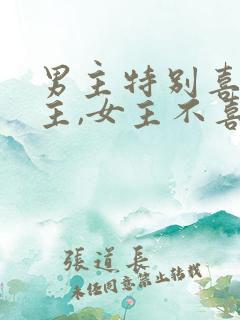 男主特别喜
主,女主不喜
張道長
未经同意禁止转载